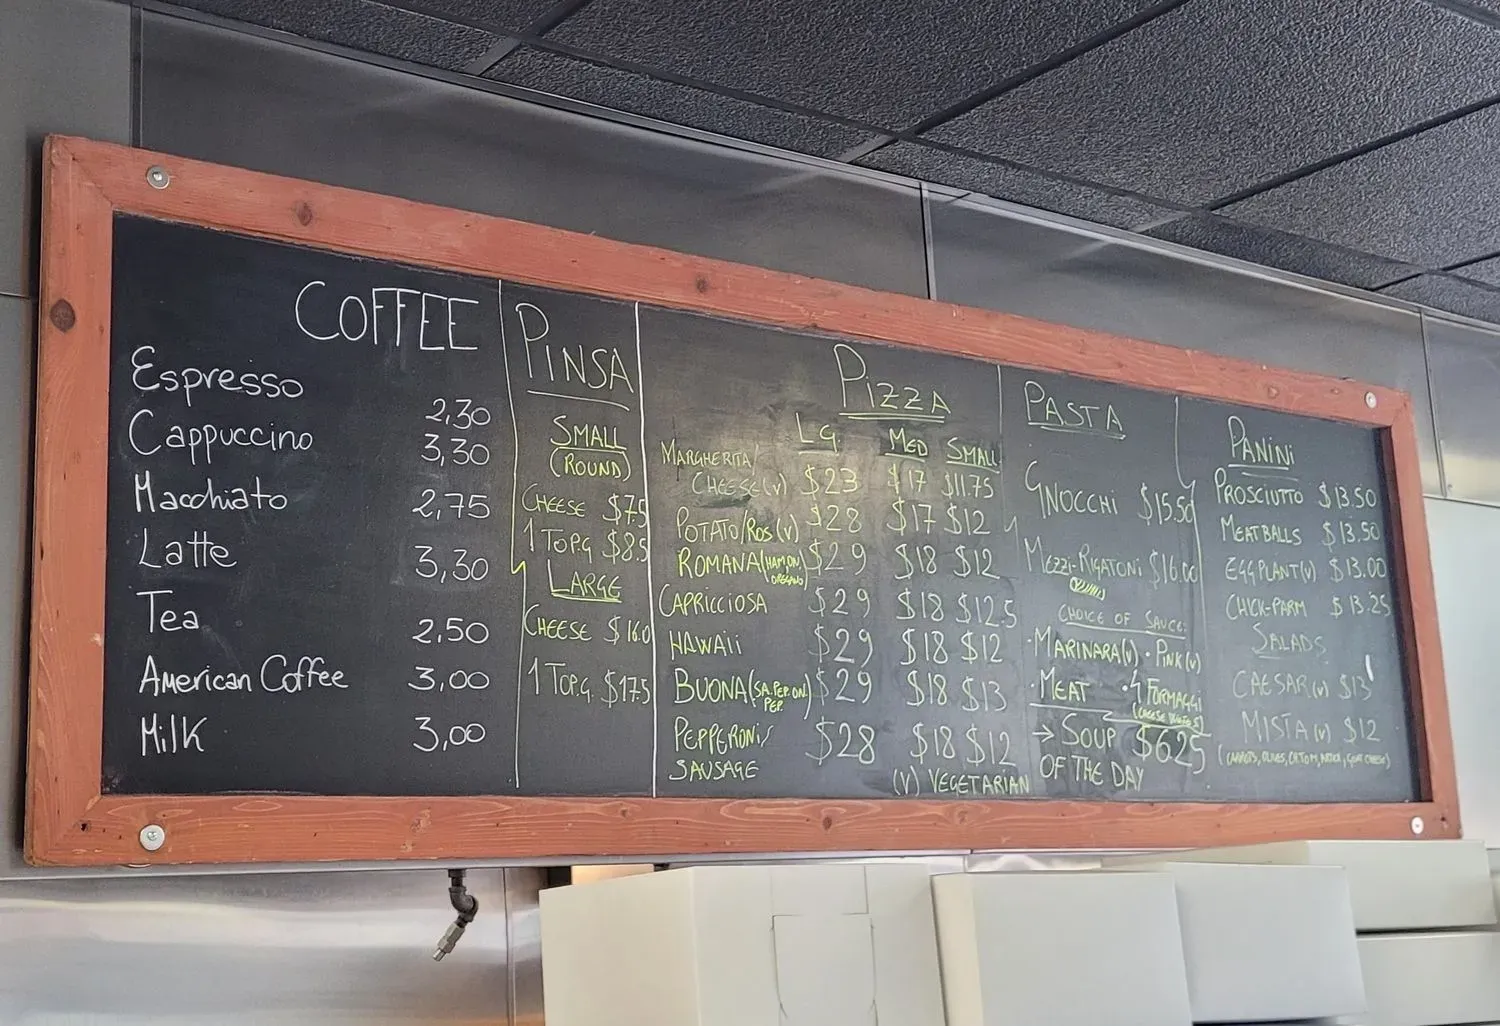 COFFEE
Espresso 2,30
Cappuccino 3,30
Macchiato 2,75
Latte 3,30
Tea 2.50
American Coffee 3,00
Milk 3,00
PINSA
SMALL
(ROUND)
CHEESE $7.5
1 TOP.G $8.5
LARGE
CHEESE $16.0
1 TOP.G. $17.5
PIZZA
LG. MED SMALL
MARGHERITA/
CHEESE(V) $23 $17 $11.75
POTATO/ROS(V) $28 $17 $12
ROMANA(HAM,ON, $29 $18 $12
OREGANO)
CAPRICCIOSA $29 $18 $12.5
HAWAII $29 $18 $12
BUONA(SA.PEP.ON. $29 $18 $13
PEP.)
PEPPERONI/ $28 $18 $12
SAUSAGE
(V) VEGETARIAN
PASTA
GNOCCHI $15.50
MEZZI-RIGATONI $16.00
CHOICE OF SAUCE:
·MARINARA(V) ·PINK(V)
·MEAT ·4 FORMAGGI
(CHEESE
→ SOUP $6.25
OF THE DAY
PANINI
PROSCIUTTO $13.50
MEATBALLS $13.50
EGGPLANT(V) $13.00
CHICK-PARM $13.25
SALADS
CAESAR(V) $13
MISTA(V) $12
(CARROTS, OLIVES, GOAT CHEESE)